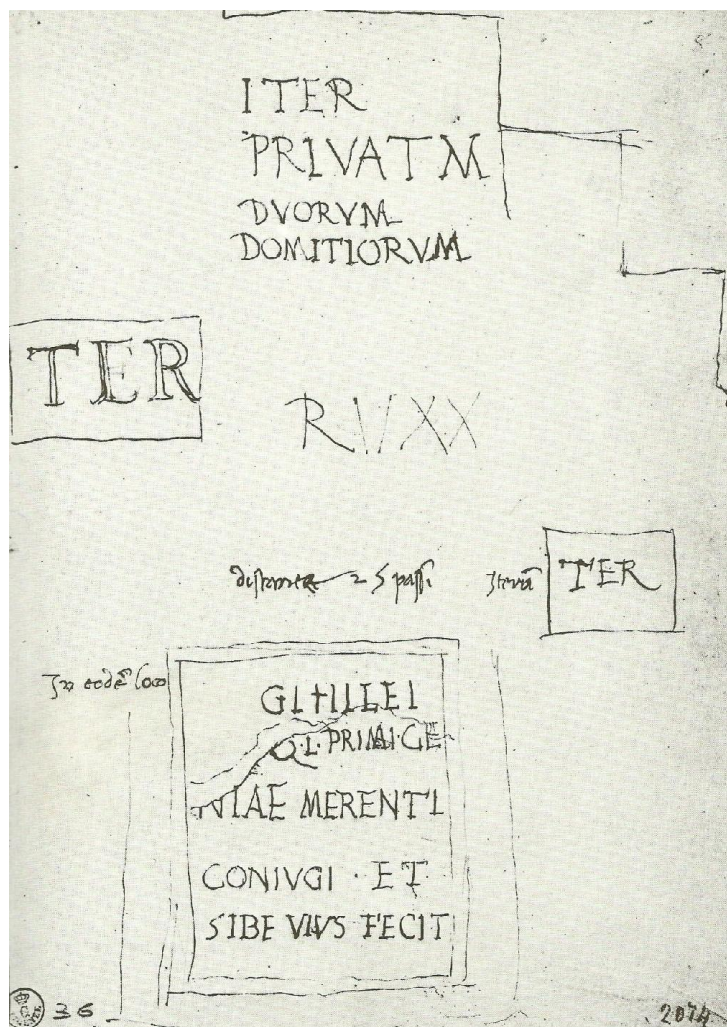 ITER
PRIVATM
DVORVM
DOMITIORVM
TER
R V XX
distantia 25 passi
TER
In eodē loco
Q·L·PRIMIGE
NIAE MERENTI
CONIVGI · ET
SIBE VIVS FECIT
36
2074